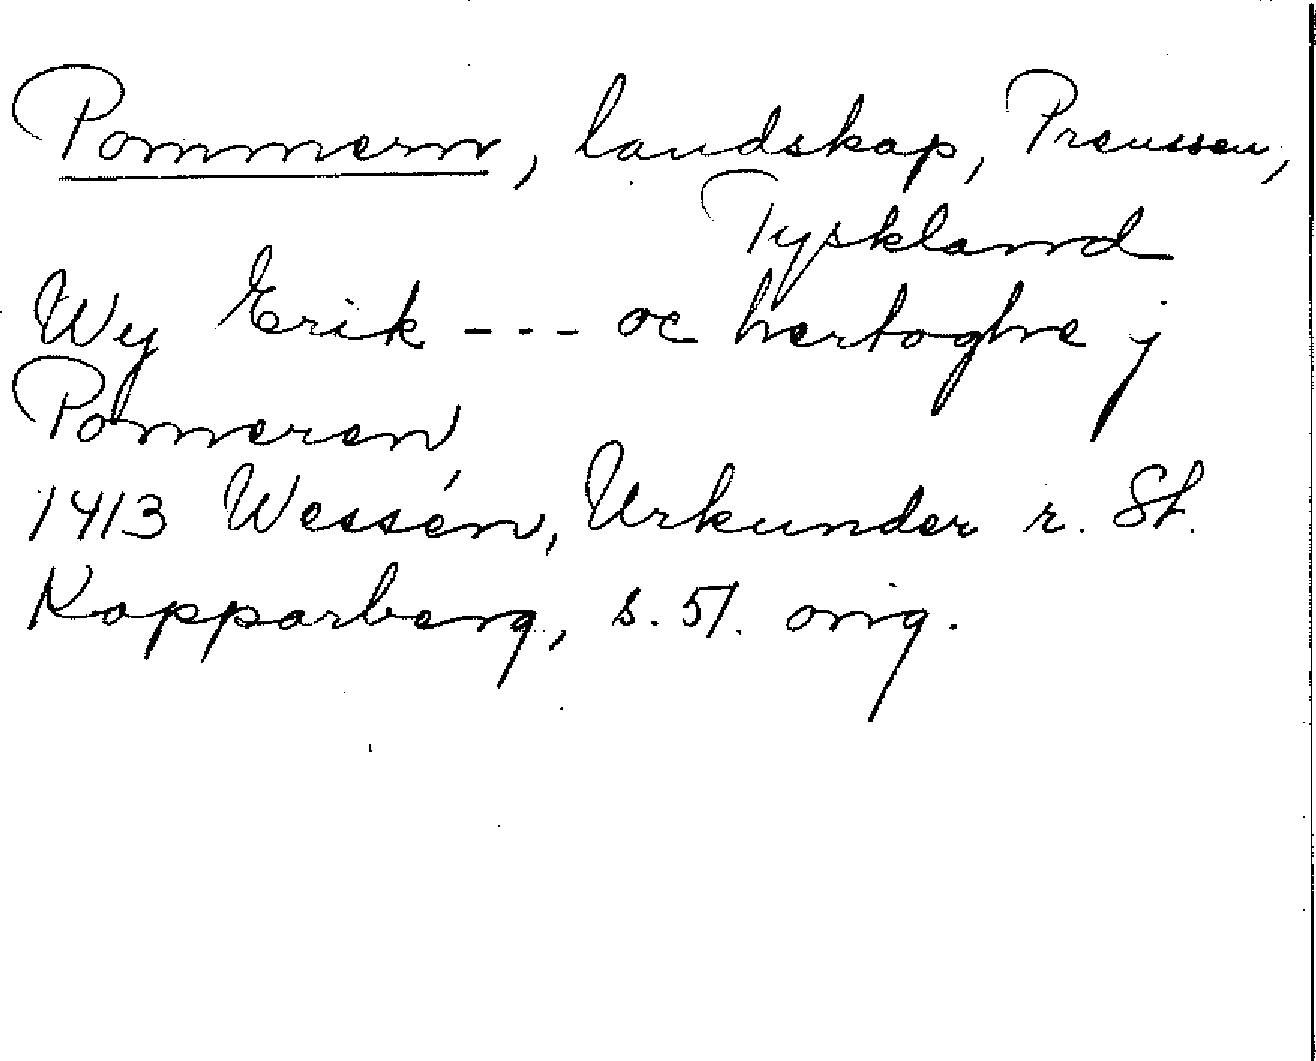 Pommern, landskap, Preussen,
Tyskland
Wy Erik --- oc hertoghe j
Pomeren
1413 Wessén, Urkunder r. St.
Kopparberg, s. 51. orig.